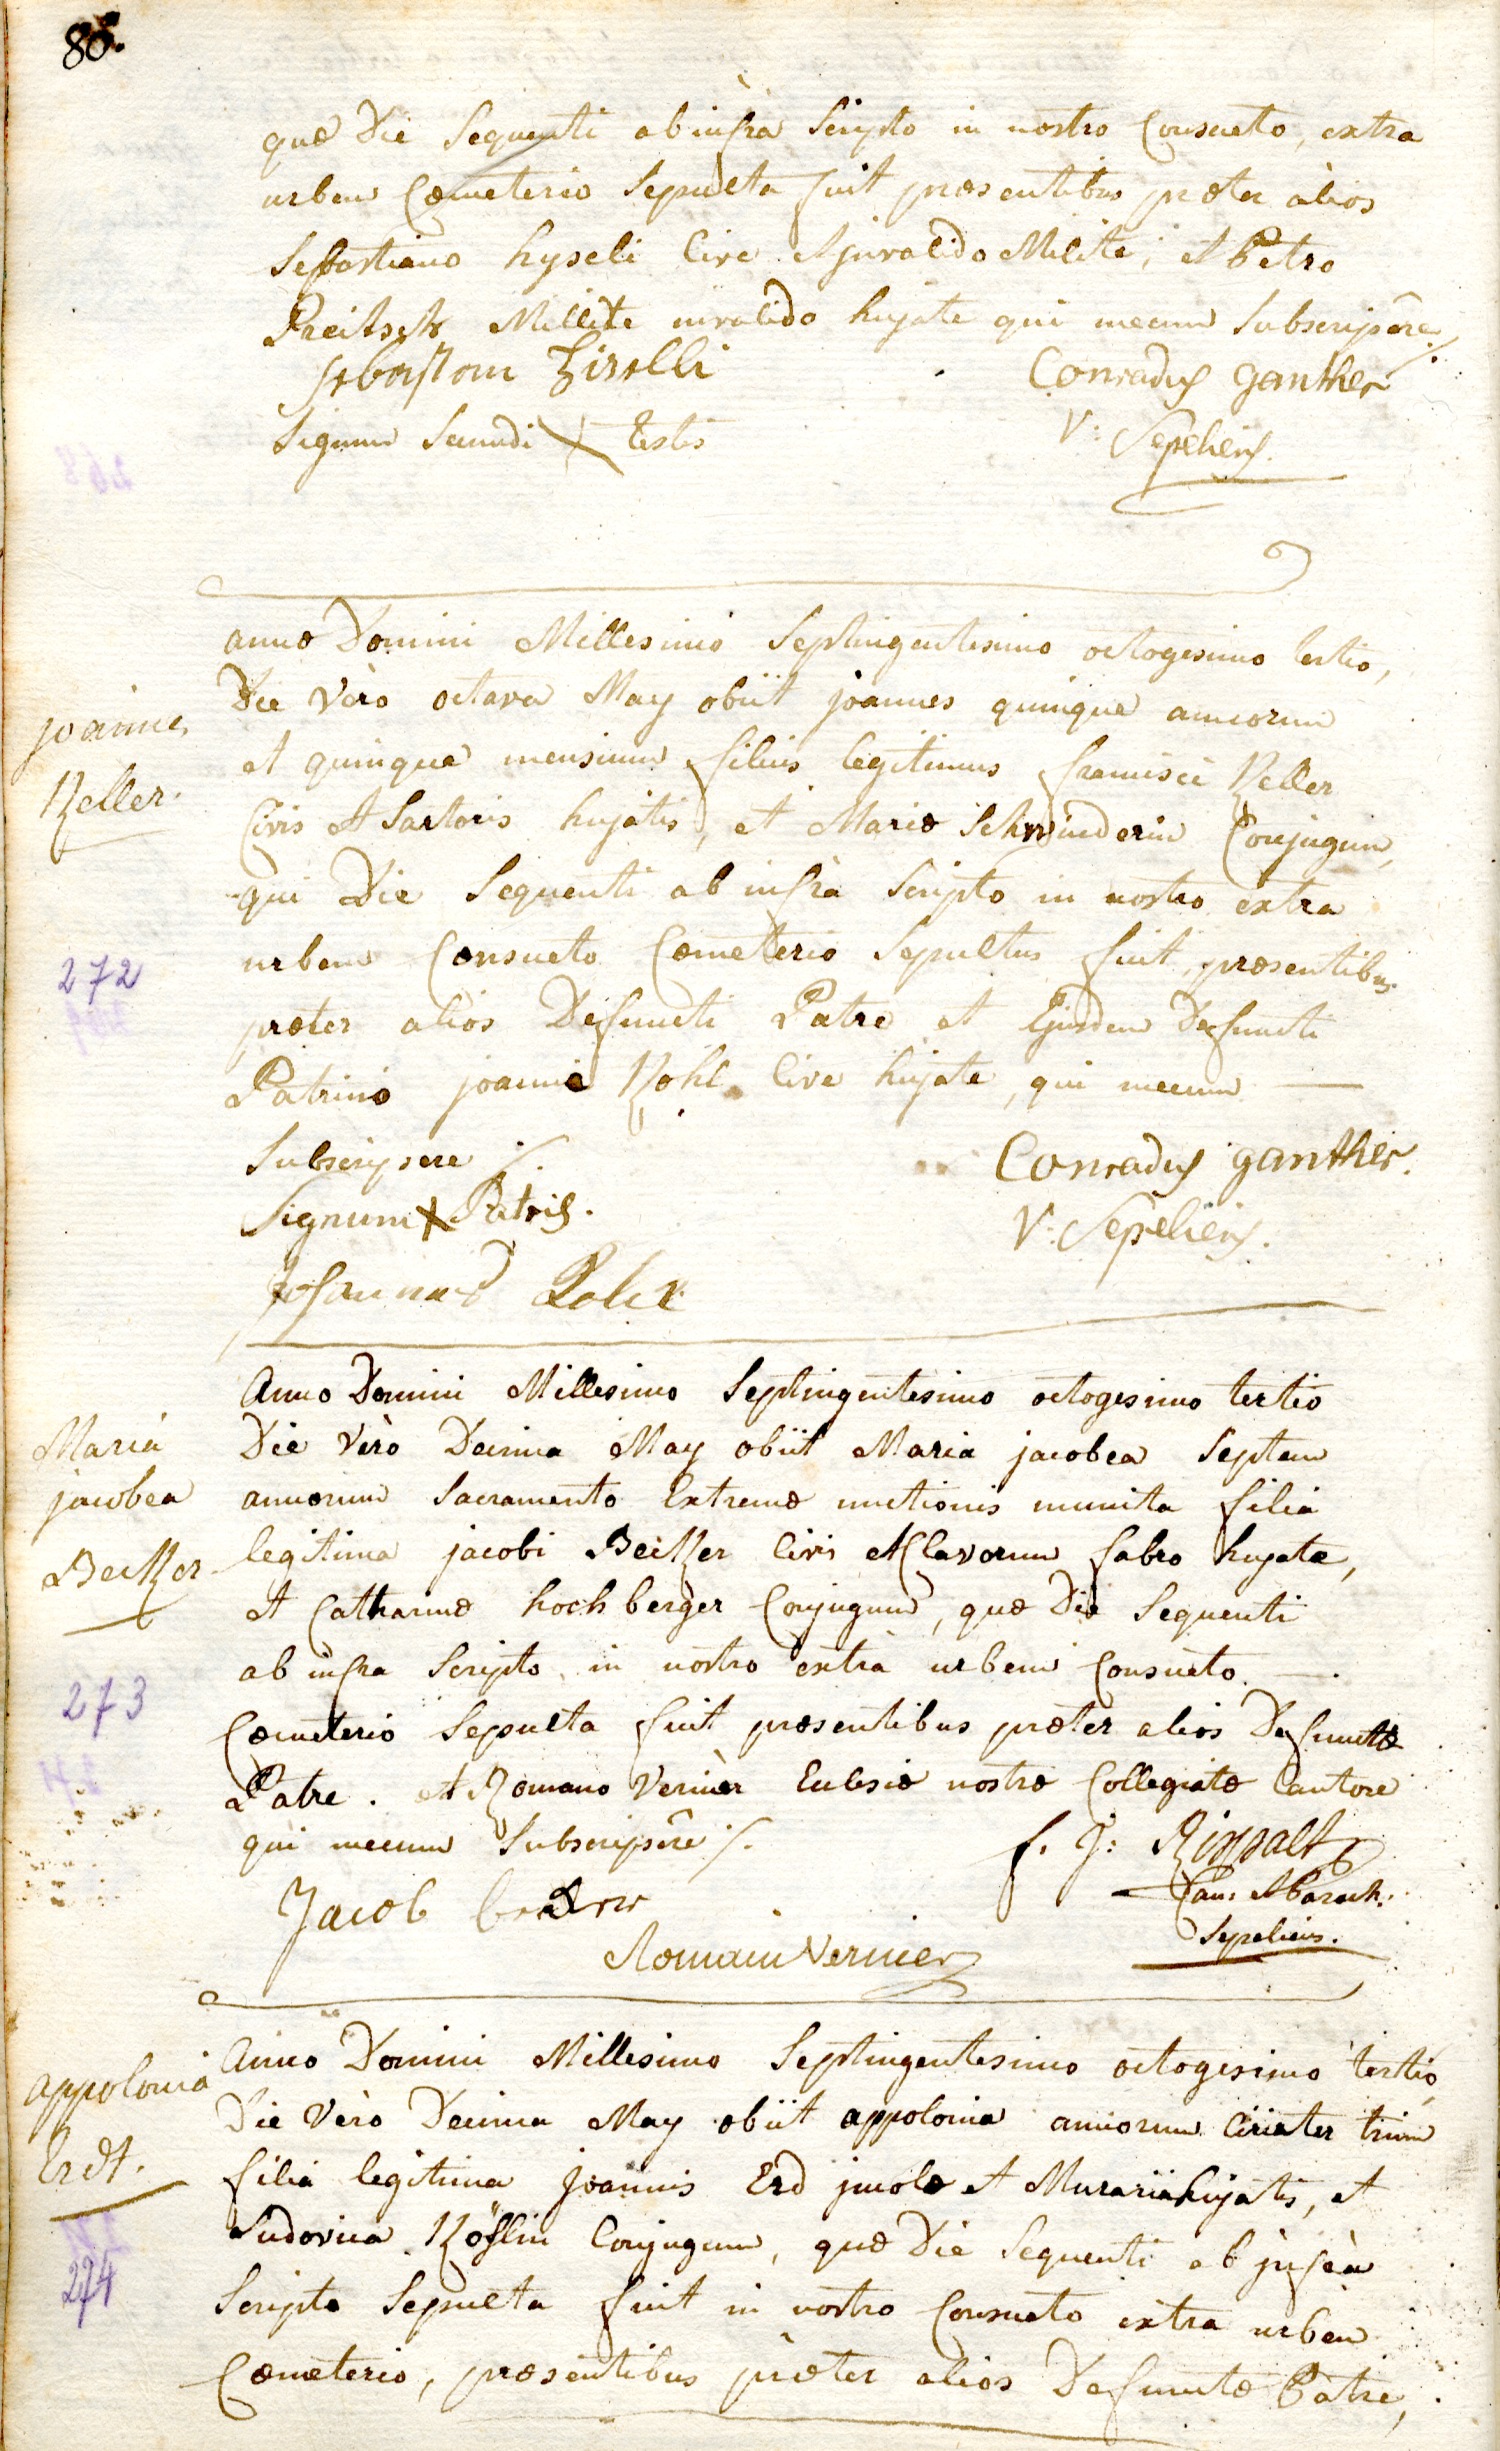 80.
quæ Die Sequenti ab infrà Scripto in nostro Consueto, extra
urbem Cœmeterio Sepulta fuit præsentibus præter àlios
Sebastiano hyseli Cive et jnvalido Milite, et Petro
Preitsch Millite invalido hujate qui mecum Subscripsêre ·/.
Conradus ganther
Signum Secundi X testis
V: Sepeliens.
anno Domini Millesimo Septingentesimo octogesimo tertio,
Die Vèro octava May obiit joannes quinque annorum
joannes
et quinque mensium filius legitimus francisci Keller
Keller.
Civis et Sartoris hujatis, et Mariæ Schwinderin Conjugum,
qui Die Sequenti ab infrà Scripto in nostro extra
urbem Consueto Cœmeterio Sepultus fuit, præsentibus
272
præter alios Defuncti Patre et Ejusdem Defuncti
Patrino joanne Kohl Cive hujate, qui mecum
Subscripsere ·/.
Conradus ganther.
Signum X Patris.
V: Sepeliens.
Anno Domini Millesimo Septingentesimo octogesimo tertio
Maria
Die Vèro Decima May obiit Maria jacobea Septem
jacobea
annorum Sacramento Extremæ unctionis munita filia
Becker
legitima jacobi Becker Civis et Clavorum fabro hujatæ,
et Catharinæ hochberger Conjugum, quæ Die Sequenti
ab infra Scripto in nostro extrà urbem Consueto
273
Cœmeterio Sepulta fuit præsentibus præter alios Defunctæ
Patre. et Romano Vernier Eclesiæ nostræ Collegiatæ Cantore
qui mecum Subscripsêre ·/.
f. J:
Can: et Paroch:
Jacob
Sepeliens.
Romain Vernier
Anno Domini Millesimo Septingentesimo octogesimo tertio
appolonia
Die Vèro Decima May obiit appolonia annorum Circiter trium
Erdt.
filia legitima Joannis Erd jncolæ et Murarii hujatis, et
Ludovica Kößlin Conjugum, quæ Die Sequenti ab jnfrà
274
Scripto Sepulta fuit in nostro Consueto extra urbem
Cœmeterio, præsentibus præter alios Defunctæ Patre,